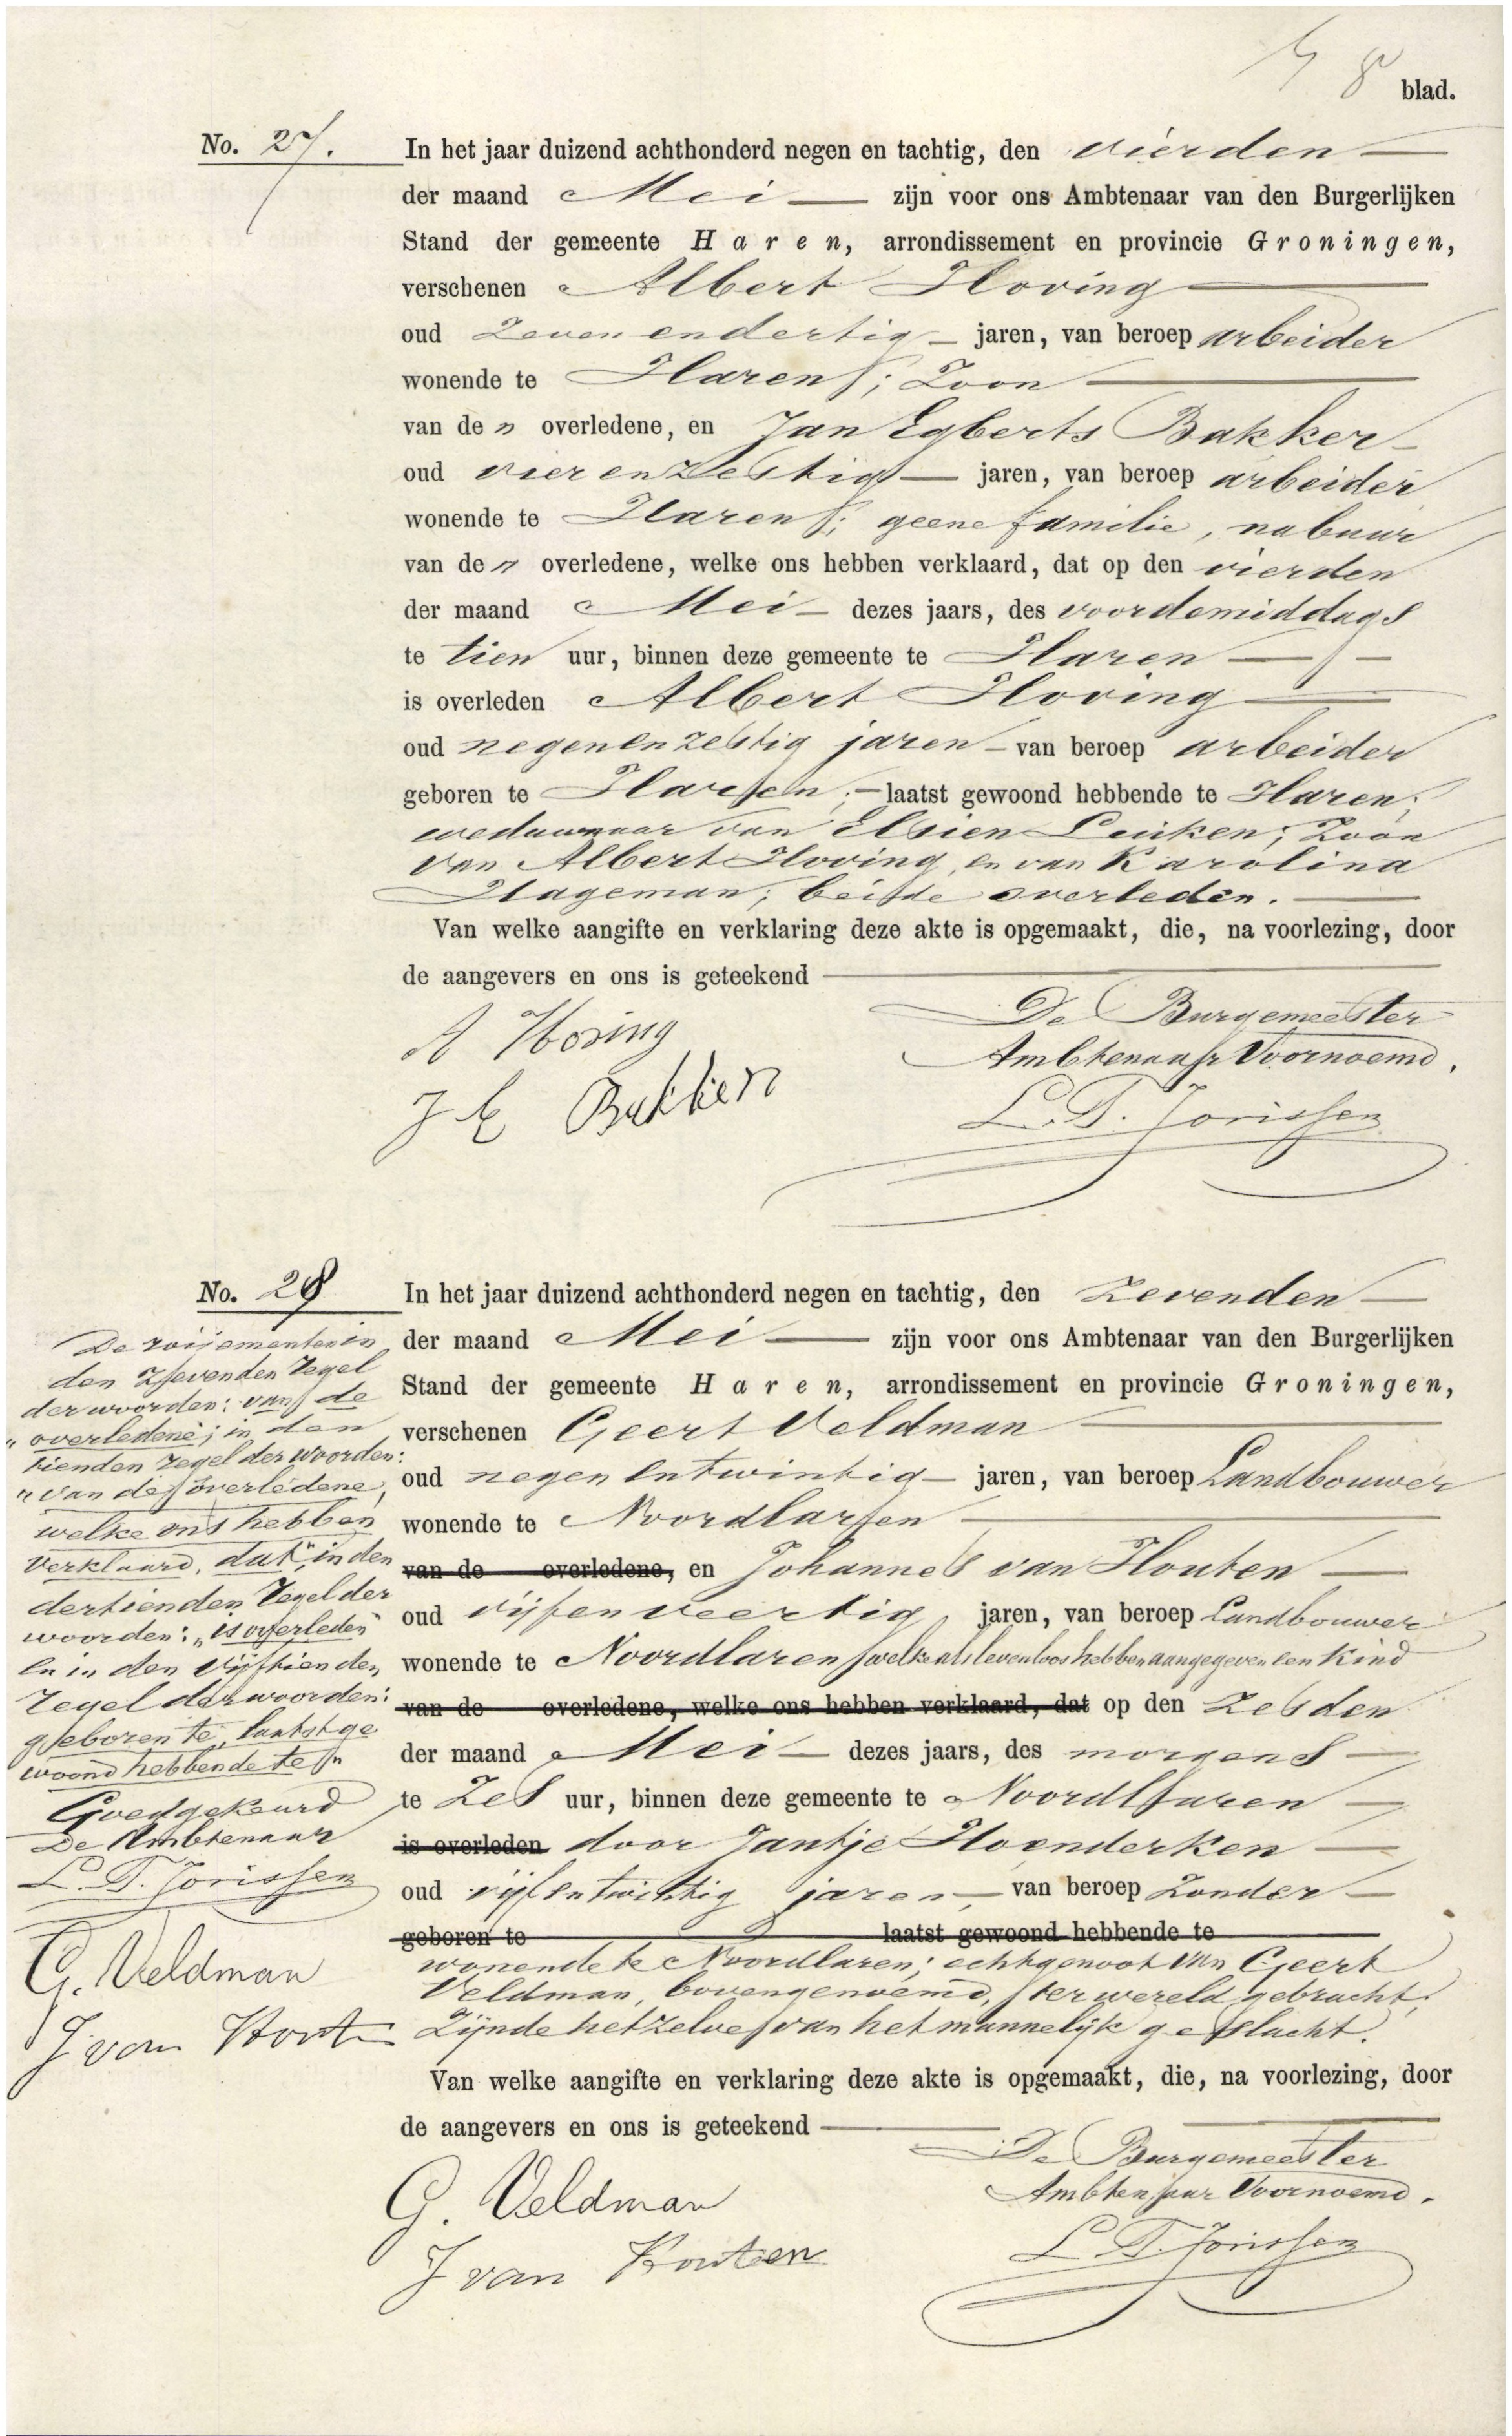 8 blad.
No. 27.
In het jaar duizend achthonderd negen en tachtig, den vierden
der maand Mei zijn voor ons Ambtenaar van den Burgerlijken
Stand der gemeente Haren, arrondissement en provincie Groningen,
verschenen Albert Hoving
oud zeven en dertig jaren, van beroep arbeider
wonende te Haren; Zoon
van de n overledene, en Jan Egberts Bakker
oud vier en zestig jaren, van beroep arbeider
wonende te Haren; geene familie, nabuur
van de n overledene, welke ons hebben verklaard, dat op den vierden
der maand Mei dezes jaars, des voordemiddags
te tien uur, binnen deze gemeente te Haren
is overleden Albert Hoving
oud negen en zestig jaren van beroep arbeider
geboren te Haren; laatst gewoond hebbende te Haren;
weduwnaar van Elsien Luiken; Zoon
van Albert Hoving, en van Karolina
Hageman; beide overleden.
Van welke aangifte en verklaring deze akte is opgemaakt, die, na voorlezing, door
de aangevers en ons is geteekend
De Burgemeester
Ambtenaar Voornoemd,
A Hoving
J E Bakker
L. T. Jorissen
No. 28
In het jaar duizend achthonderd negen en tachtig, den zevenden
der maand Mei zijn voor ons Ambtenaar van den Burgerlijken
Stand der gemeente Haren, arrondissement en provincie Groningen,
verschenen Geert Veldman
oud negen en twintig jaren, van beroep Landbouwer
wonende te Noordlaren
van de overledene, en Johannes van Houten
oud vijf en veertig jaren, van beroep Landbouwer
wonende te Noordlaren welke als levenloos hebben aangegeven een Kind
van de overledene, welke ons hebben verklaard, dat op den zesden
der maand Mei dezes jaars, des morgens
te zes uur, binnen deze gemeente te Noordlaren
is overleden door Jantje Hoenderken
oud vijf en twintig jaren, van beroep zonder
geboren te laatst gewoond hebbende te
wonende te Noordlaren; echtgenoot van Geert
Veldman, bovengenoemd, ter wereld gebracht;
Zijnde hetzelve van het mannelijk geslacht.
Van welke aangifte en verklaring deze akte is opgemaakt, die, na voorlezing, door
de aangevers en ons is geteekend
De Burgemeester
Ambtenaar Voornoemd.
G. Veldman
J van Houten
L. T. Jorissen
De roijementen in
den zevenden regel
der woorden: van de
"overledene; in den
tienden regel der woorden:
"van de overledene,
welke ons hebben
verklaard, dat", in den
dertienden regel der
woorden: "is overleden"
en in den vijftienden
regel der woorden:
geboren te, laatst ge
woond hebbende te
Goedgekeurd
De Ambtenaar
L. T. Jorissen
G. Veldman
J van Houten